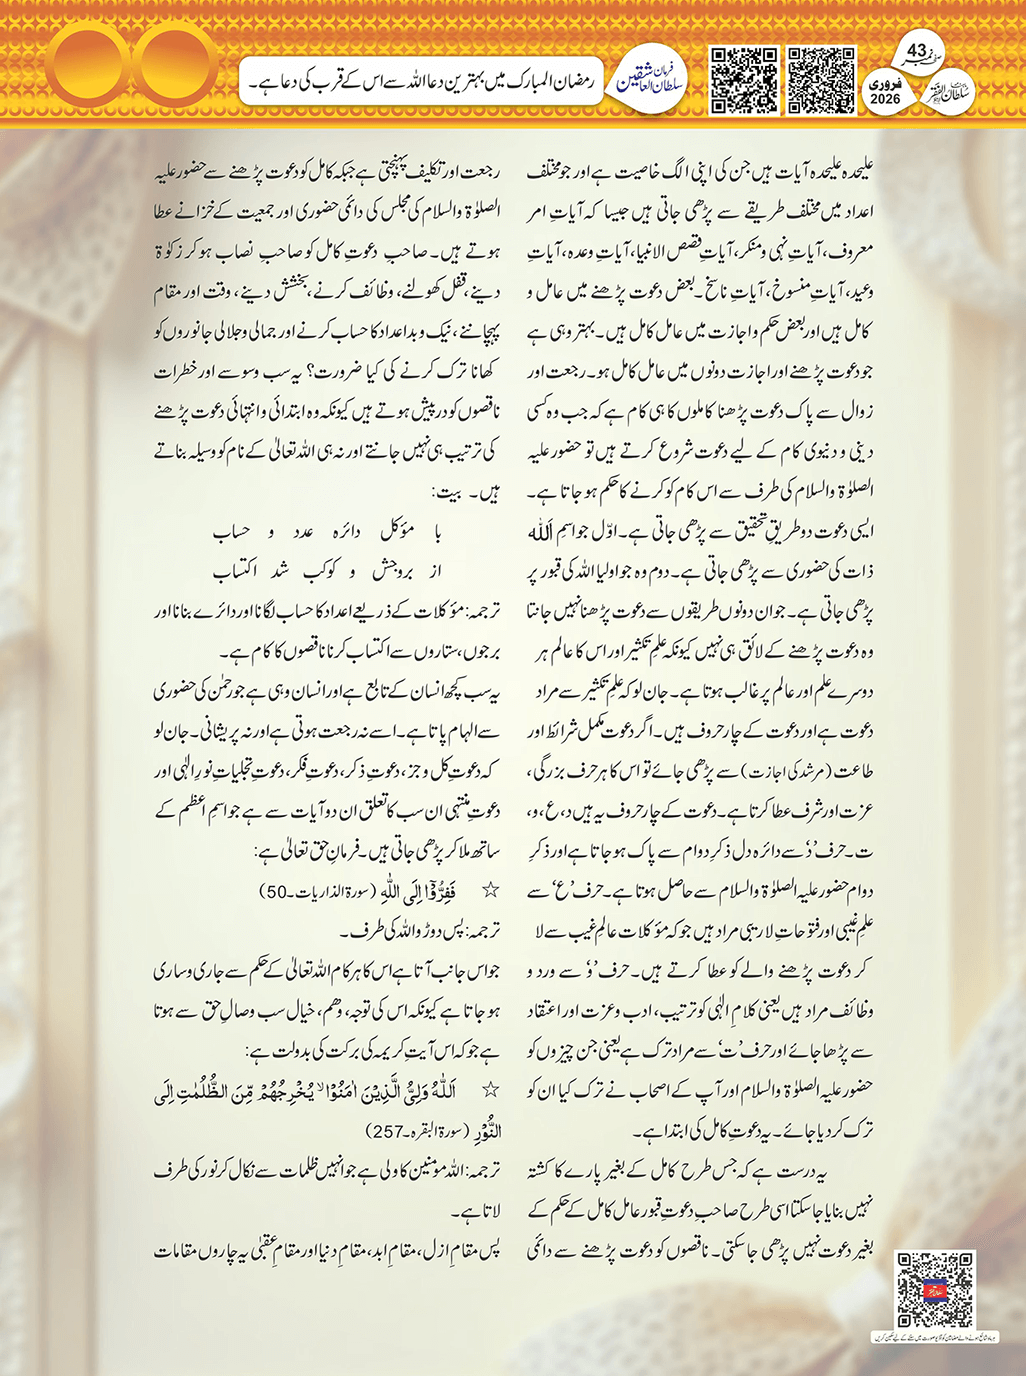 رمضان المبارک میں بہترین دعا اللہ سے اس کے قرب کی دعا ہے۔
فرمان سلطان العاشقین
صفحہ نمبر 43
فروری 2026
ماہنامہ سلطان الفقر
علیحدہ علیحدہ آیات ہیں جن کی اپنی الگ خاصیت ہے اور جو مختلف
اعداد میں مختلف طریقے سے پڑھی جاتی ہیں جیسا کہ آیاتِ امر
معروف، آیاتِ نہی و منکر، آیاتِ قصص الانبیا، آیاتِ وعدہ، آیاتِ
وعید، آیاتِ منسوخ، آیاتِ ناسخ۔ بعض دعوت پڑھنے میں عامل و
کامل ہیں اور بعض حکم و اجازت میں عامل کامل ہیں۔ بہتر وہی ہے
جو دعوت پڑھنے اور اجازت دونوں میں عامل کامل ہو۔ رجعت اور
زوال سے پاک دعوت پڑھنا کاملوں کا ہی کام ہے کہ جب وہ کسی
دینی و دنیوی کام کے لیے دعوت شروع کرتے ہیں تو حضور علیہ
الصلوٰۃ والسلام کی طرف سے اس کام کو کرنے کا حکم ہو جاتا ہے۔
ایسی دعوت دو طریقِ تحقیق سے پڑھی جاتی ہے۔ اوّل جو اسمِ اَللہ
ذات کی حضوری سے پڑھی جاتی ہے۔ دوم وہ جو اولیا اللہ کی قبور پر
پڑھی جاتی ہے۔ جو ان دونوں طریقوں سے دعوت پڑھنا نہیں جانتا
وہ دعوت پڑھنے کے لائق ہی نہیں کیونکہ علمِ تکثیر اور اس کا عالم ہر
دوسرے علم اور عالم پر غالب ہوتا ہے۔ جان لو کہ علمِ تکثیر سے مراد
دعوت ہے اور دعوت کے چار حروف ہیں۔ اگر دعوت مکمل شرائط اور
طاعت (مرشد کی اجازت) سے پڑھی جائے تو اس کا ہر حرف بزرگی،
عزت اور شرف عطا کرتا ہے۔ دعوت کے چار حروف یہ ہیں د، ع، و،
ت۔ حرف ’د‘ سے دائرہ دل ذکرِ دوام سے پاک ہو جاتا ہے اور ذکرِ
دوام حضور علیہ الصلوٰۃ والسلام سے حاصل ہوتا ہے۔ حرف ’ع‘ سے
علمِ غیبی اور فتوحاتِ لاریبی مراد ہیں جو کہ مؤکلات عالمِ غیب سے لا
کر دعوت پڑھنے والے کو عطا کرتے ہیں۔ حرف ’و‘ سے ورد و
وظائف مراد ہیں یعنی کلامِ الٰہی کو ترتیب، ادب و عزت اور اعتقاد
سے پڑھا جائے اور حرف ’ت‘ سے مراد ترک ہے یعنی جن چیزوں کو
حضور علیہ الصلوٰۃ والسلام اور آپ کے اصحاب نے ترک کیا ان کو
ترک کر دیا جائے۔ یہ دعوتِ کامل کی ابتدا ہے۔
یہ درست ہے کہ جس طرح کامل کے بغیر پارے کا کشتہ
نہیں بنایا جا سکتا اسی طرح صاحبِ دعوتِ قبور عامل کامل کے حکم کے
بغیر دعوت نہیں پڑھی جا سکتی۔ ناقصوں کو دعوت پڑھنے سے دائمی
رجعت اور تکلیف پہنچتی ہے جبکہ کامل کو دعوت پڑھنے سے حضور علیہ
الصلوٰۃ والسلام کی مجلس کی دائمی حضوری اور جمعیت کے خزانے عطا
ہوتے ہیں۔ صاحبِ دعوتِ کامل کو صاحبِ نصاب ہو کر زکوٰۃ
دینے، قفل کھولنے، وظائف کرنے، بخشش دینے، وقت اور مقام
پہچاننے، نیک و بد اعداد کا حساب کرنے اور جمالی و جلالی جانوروں کو
کھانا ترک کرنے کی کیا ضرورت؟ یہ سب وسوسے اور خطرات
ناقصوں کو درپیش ہوتے ہیں کیونکہ وہ ابتدائی و انتہائی دعوت پڑھنے
کی ترتیب ہی نہیں جانتے اور نہ ہی اللہ تعالیٰ کے نام کو وسیلہ بناتے
ہیں۔ بیت:
با مؤکل دائرہ عدد و حساب
از بروجش و کوکب شد اکتساب
ترجمہ: مؤکلات کے ذریعے اعداد کا حساب لگانا اور دائرے بنانا اور
برجوں، ستاروں سے اکتساب کرنا ناقصوں کا کام ہے۔
یہ سب کچھ انسان کے تابع ہے اور انسان وہی ہے جو رحمٰن کی حضوری
سے الہام پاتا ہے۔ اسے نہ رجعت ہوتی ہے اور نہ پریشانی۔ جان لو
کہ دعوتِ کل و جز، دعوتِ ذکر، دعوتِ فکر، دعوتِ تجلیاتِ نورِ الٰہی اور
دعوتِ منتہی ان سب کا تعلق ان دو آیات سے ہے جو اسمِ اعظم کے
ساتھ ملا کر پڑھی جاتی ہیں۔ فرمانِ حق تعالیٰ ہے:
☆ فَفِرُّوْٓا اِلَى اللّٰهِ (سورۃ الذاریات۔50)
ترجمہ: پس دوڑو اللہ کی طرف۔
جو اس جانب آتا ہے اس کا ہر کام اللہ تعالیٰ کے حکم سے جاری و ساری
ہو جاتا ہے کیونکہ اس کی توجہ، وھم، خیال سب وصالِ حق سے ہوتا
ہے جو کہ اس آیتِ کریمہ کی برکت کی بدولت ہے:
☆ اَللّٰهُ وَلِيُّ الَّذِيْنَ اٰمَنُوْا ۙ يُخْرِجُهُمْ مِّنَ الظُّلُمٰتِ اِلَى
النُّوْرِ (سورۃ البقرہ۔257)
ترجمہ: اللہ مومنین کا ولی ہے جو انہیں ظلمات سے نکال کر نور کی طرف
لاتا ہے۔
پس مقامِ ازل، مقامِ ابد، مقامِ دنیا اور مقامِ عقبیٰ یہ چاروں مقامات